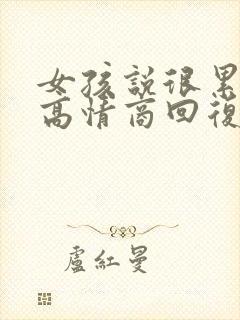 女孩說很累
高情商回復
盧紅曼